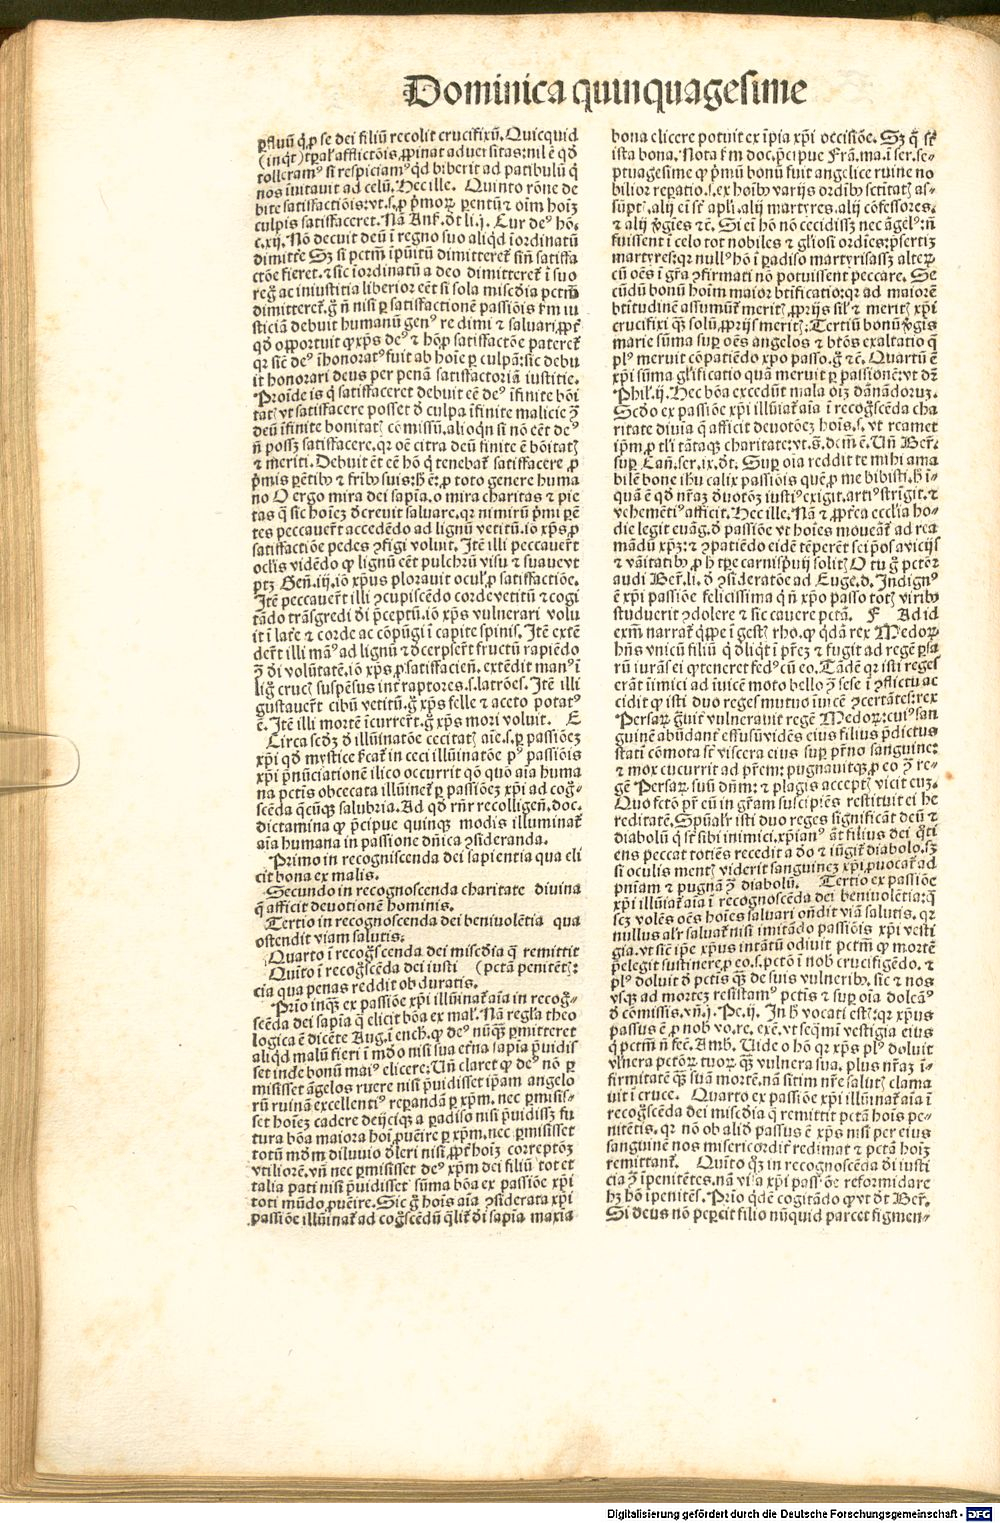 Dominica quinquagesime
ꝑfluū q̄ ꝓ se dei filiū recolit crucifixū. Quicquid
(inq̄t) tꝑal' afflictōis ꝓpinat aduersitas: nil ē qd̄
tolleram⁹ si respiciam⁹ qd̄ biberit ad patibulū q̄
nos īuitauit ad celū. Hec ille. Quinto rōne de
bite satisfactiōis: vt .s. ꝓ pͥmoꝝ parentū ⁊ oīm hoīꝫ
culpis satisfaceret. Nā Anſ. dt li. j. Cur de⁹ hō.
c. xij. Nō decuit deū ī regno suo aliqd īordinatū
dimitte Sꝫ si pctm̄ īpunitū dimitteret sin̄ satisfa
ctōe fieret. ⁊ sic īordinatū a deo dimitteret ī suo
reg̊ ac iniustitia liberior eēt si sola misc̄dia pctm̄
dimitteret. g̊ n̄ nisi ꝑ satisfactionē passiōis fm iu
sticiā debuit humanū gen⁹ redimi ⁊ saluari, ꝓpt̄
qd̄ oꝓportuit ꝙ xp̄s de⁹ ⁊ hō ꝓ satisfactōe pateret̄
qꝛ sic̄ de⁹ īhonorat⁹ fuit ab hoīe ꝑ culpā: sic debu
it honorari deus per penā satisfactoriā iustitie.
Proīde is q̄ satisfaceret debuit eē de⁹ īfinite boni
tatꝭ vt satisfacere posset ꝺ culpa īfinite malicie ꝯ̄
deū īfinite bonitatꝭ cōmissū. alioqn̄ si nō eēt de⁹
n̄ possꝫ satisfacere. qꝛ oē citra deū finite ē bōitatꝭ
⁊ meriti. Debuit ēt eē hō q̄ tenebat̄ satisfacere ꝓ
pͥmis parētibꝰ ⁊ frībꝰ suis: h̄ ē: ꝓ toto genere huma
no O ergo mira dei sapīa. o mira charitas ⁊ pie
tas q̄ sic hoīeꝫ ꝺcreuit saluare. qꝛ nimirū pͥmi parē
tes peccauert̄ accedēdo ad lignū vetitū. iō xp̄s ꝓ
satisfactiōe pedes ꝯfigi voluit. Itē illi peccauert̄
oclis vidēdo ꝙ lignū eēt pulchrū visu ⁊ suaue vt
ptꝫ Gen̄. iij. iō xp̄us plorauit ocul' ꝓ satisfactiōe.
Itē peccauert̄ illi ꝯcupiscēdo corde vetitū ⁊ cogi
tādo trāsgredi dī p̄ceptū. iō xp̄s vulnerari volu
it ī lat̄e ⁊ corde ac cōpūgi ī capite spinis. Itē extē
dert̄ illi man⁹ ad lignū ⁊ ꝺcerpsert̄ fructū rapiēdo
ꝯ̄ dī volūtatē. iō xp̄s ꝓ satisfaciē. extēdit man⁹ ī
lig̊ crucꝭ suspēsus int̄ raptores .s. latrōes. Itē illi
gustauert̄ cibū vetitū. g̊ xp̄s felle ⁊ aceto potat⁹
ē. Itē illi mortē īcurrert̄. g̊ xp̄s mori voluit. E
Circa scdꝫ ꝺ illuīatōe cecitatꝭ aīe .s. ꝑ passiōeꝫ
xp̄i qd̄ mystice fcāt̄ in ceci illuīatōe p⁹ passiōis
xp̄i p̄nūciationē ilico occurrit qō quō aīa huma
na pctīs obcecata illuīnet̄ ꝑ passiōeꝫ xp̄i ad cog̊
scēda q̄cūqꝫ salubria. Ad qd̄ rn̄r recolligen̄. doc.
dictamina ꝙ p̄cipue quinqꝫ modis illuminat̄
aīa humana in passione dn̄ica ꝯsideranda.
Primo in recogniscenda dei sapientia qua eli
cit bona ex malis.
Secundo in recognoscenda charitate diuina
q̄ afficit deuotionē hominis.
Tertio in recognoscenda dei beniuolētia qua
ostendit viam salutis.
Quarto ī recog̊scenda dei misc̄dia q̄ remittit
Quīto ī recog̊scēda dei iusti (pctā penitētꝭ:
cia qua penas reddit obduratis.
Prio inqꝫ ex passiōe xp̄i illuīat̄ aīa in recog̊
scēda dei sapīa q̄ elicit bōa ex mal'. Nā regla theo
logica ē dicēte Aug. ī ench. ꝙ de⁹ nūqꝫ ꝑmitteret
aliqd malū fieri ī mūdo nisi sua et̄na sapīa p̄uidis
set inde bonū mai⁹ elicere: Vn̄ claret ꝙ de⁹ nō ꝑ
misisset āgelos ruere nisi p̄uidisset ip̄am angelo
rū ruinā excellenti⁹ reꝑandā ꝑ xp̄m. nec ꝑmisis-
set hoīeꝫ cadere deijciqꝫ a paradiso nisi p̄uidissꝫ fu
tura bōa maiora hoī ꝓuēire ꝑ xp̄m. nec ꝑmisisset
totū mūdm diluuio ꝺleri nisi ꝓpt̄ hoīeꝫ correptōeꝫ
vtiliorē. vn̄ nec ꝑmisisset de⁹ xp̄m dei filiū tot et
talia pati nisi p̄uidisset sūma bōa ex passiōe xp̄i
toti mūdo ꝓuēire. Sic g̊ hoīs aīa ꝯsiderata xp̄i
passiōe illuīat̄ ad cog̊scēdū q̄lit̄ dī sapīa maxīa
bona elicere potuit ex īpia xp̄i occisiōe. Sꝫ q̄ st̄
ista bona. Nota fm doc. p̄cipue Frā. ma. ī ser. se-
ptuagesime ꝙ pͥmū bonū fuit angelice ruine no
bilior reꝑatio .s. ex hoībꝰ varijs ordībꝰ sctītatꝭ as-
sūptꝭ. alij eī st̄ apl'i. alij martyres. alij cōfessores.
⁊ alij v̄gīes ⁊ c̄. Si eī hō nō cecidissꝫ nec āgel⁹: n̄
fuissent ī celo tot nobiles ⁊ gl'iosi ordīes: p̄sertiꝫ
martyres: qꝛ null⁹ hō ī paradiso martyrisassꝫ alterꝫ
cū oēs ī gr̄a ꝯfirmati nō potuissent peccare. Se
cūdū bonū hoīm maior btīficatio: qꝛ ad maiorē
btītudinē assumūt̄ meritꝭ ꝓprijs sil' ⁊ meritꝭ xp̄i
crucifixi qꝫ̄ solū ꝓprijs meritꝭ: Tertiū bonū v̄gīs
marie sūma suꝑ oēs angelos ⁊ btōs exaltatio q̄
pl⁹ meruit cōpatiēdo xp̄o passo. g̊ ⁊ c̄. Quartū ē
xp̄i sūma gl'ificatio quā meruit ꝑ passionē: vt dꝫ
Phil'. ij. Hec bōa excedūt mala oīꝫ dānādoruꝫ.
Scd̄o ex passiōe xp̄i illuīat̄ aīa ī recog̊scēda cha
ritate diuīa q̄ afficit deuotōeꝫ hoīs .s. vt reamet
ip̄m ꝓ tl'i tātaqꝫ charitate: vt .S. dcm̄ ē. Vn̄ Ber̄.
suꝑ Can̄. ser. ix. ꝺt. Suꝑ oīa reddit te mihi ama
bilē bone ihu calix passiōis quē ꝓ me bibisti. h̄ ī-
quā ē qd̄ nr̄aꝫ ꝺuotōeꝫ iusti⁹ exigit. arti⁹ strīgit. ⁊
vehemēti⁹ afficit. Hec ille. Nā ⁊ ꝓpt̄ea ecclīa ho-
die legit euāg. ꝺ passiōe vt hoīes moueāt̄ ad rea
mādū xp̄ꝫ: ⁊ ꝯpatiēdo eidē tēperēt se ip̄os a vicijs
⁊ vāitatibꝰ, ꝓ h̄ tꝑe carnispͥuij solitꝭ O tu g̊ pctōr
audi Ber̄. li. ꝺ ꝯsideratōe ad Euge. ꝺ. Indign⁹
ē xp̄i passiōe felicissima q̄ n̄ xp̄o passo totꝭ viribꝰ
studuerit ꝯdolere ⁊ sic cauere pctā. F Ad id
exm̄ narrat̄ qͥppe ī gestꝭ rho. ꝙ qͥdā rex Medoꝝ
hn̄s vnicū filiū q̄ ꝺliqͥt ī pr̄eꝫ ⁊ fugit ad regē ꝑsa
rū iurās ei ꝙ teneret fed⁹ cū eo. Tādē qꝛ isti reges
erāt īimici ad īuicē moto bello ꝯ̄ sese ī ꝯflictu ac
cidit ꝙ isti duo reges mutuo īuicē ꝯcertātes: rex
Persaꝝ g̊uit̄ vulnerauit regē Medoꝝ: cui⁹ san
guinē abūdant̄ effusū vidēs eius filius p̄dictus
stati cōmota st̄ viscera eius suꝑ pr̄no sanguine:
⁊ mox cucurrit ad pr̄em: pugnauitqꝫ ꝓ eo ꝯ̄ re-
gē Persaꝝ suū dn̄m: ⁊ plagis acceptꝭ vicit euꝫ.
Quo fctō pr̄ eū in gr̄am suscipiēs restituit ei he
reditatē. Spūalr̄ isti duo reges significāt deū ⁊
diabolū q̄ st̄ sibi inimici. xp̄ian⁹ āt filius dei q̄ti
ens peccat totiēs recedit a ꝺo ⁊ iūgit̄ diabolo. sꝫ
si oculis mentꝭ viderit sanguineꝫ xp̄i ꝓuocat̄ ad
pn̄iam ⁊ pugnā ꝯ̄ diabolū. Tertio ex passiōe
xp̄i illuīat̄ aīa ī recognoscēda dei beniuolētia: q̄
scꝫ volēs oēs hoīes saluari on̄dit viā salutis. qꝛ
nullus al'r saluat̄ nisi imitādo passiōis xp̄i vesti
gia. vt sic̄ ip̄e xp̄us intātū odiuit pctm̄ ꝙ mortē
p̄elegit sustinere ꝓ eo .s. pctō ī nob̄ crucifigēdo. ⁊
pl⁹ doluit ꝺ pctis qꝫ̄ de suis vulneribꝰ. sic ⁊ nos
vsqꝫ ad morteꝫ resistam⁹ pctīs ⁊ suꝑ oīa doleā⁹
ꝺ cōmissis. vn̄. j. Pe. ij. In h̄ vocati estꝭ: qꝛ xp̄us
passus ē ꝓ nob̄ vo. re. exē. vt seqm̄ī vestigia eius
q̄ pctm̄ n̄ fec̄. Amb. Uide o hō qꝛ xp̄s pl⁹ doluit
vl'nera pctōꝝ tuoꝝ qꝫ̄ vulnera sua. plus nr̄aꝫ ī-
firmitatē qꝫ̄ suā mortē. nā sitim nr̄e salutꝭ clama
uit ī cruce. Quarto ex passiōe xp̄i illuīat̄ aīa ī
recog̊scēda dei misc̄dia q̄ remittit pctā hoīs pe-
nitētis. qꝛ nō ob aliꝺ passus ē xp̄s nisi per eius
sanguinē nos misericordit̄ redimat ⁊ pctā hoīꝫ
remittant̄. Quīto qͥꝫ in recognoscēda dī iusti
cia ꝯ̄ īpenitētes. nā visa xp̄i passiōe reformidare
hꝫ hō īpenitēs. Prio qͥdē cogitādo ꝙ vt ꝺt Ber̄.
Si deus nō peꝑcit filio nūquid parcet figmen-
Digitalisierung gefördert durch die Deutsche Forschungsgemeinschaft - DFG